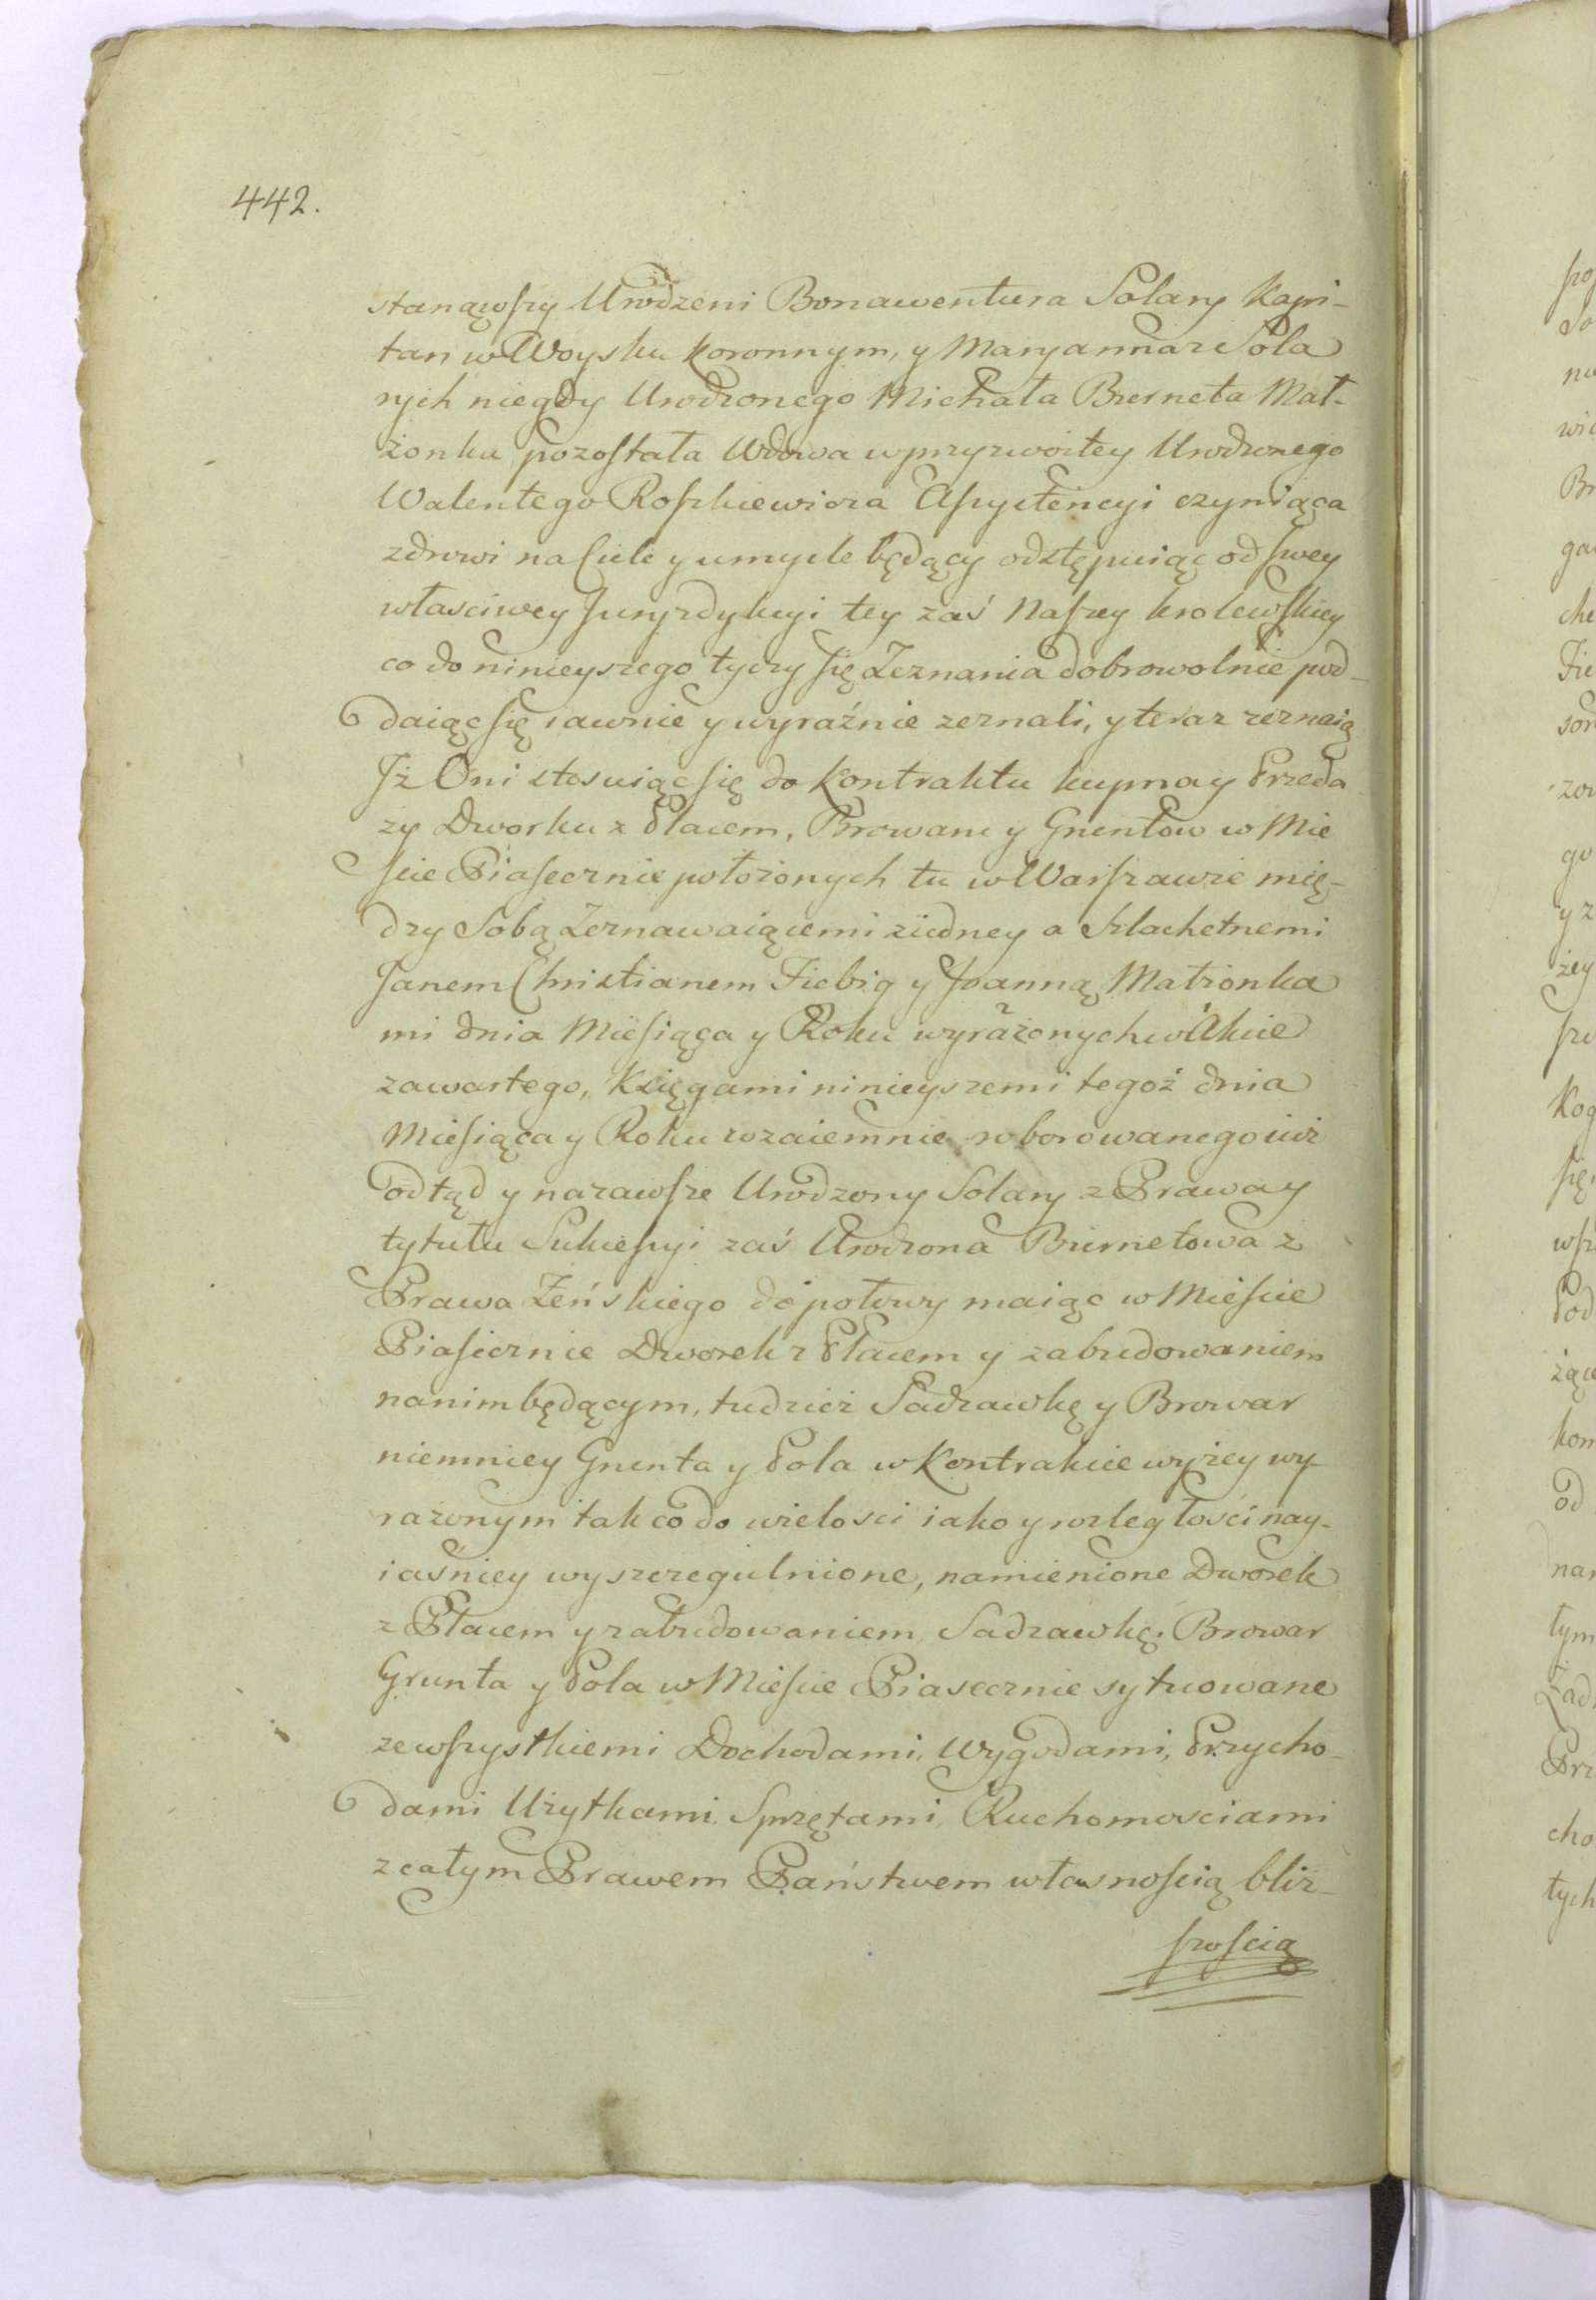 442.
stanąwszy Urodzeni Bonawentura Solary Kapi-
tan w Woysku Koronnym, y Maryanna z Sola
rych niegdy Urodzonego Michała Bierneta Mał-
żonka pozostała Wdowa w przyzwoitey Urodzonego
Walentego Roszkiewicza Assystencyi czyniąca
zdrowi na Ciele y umyśle będący odstępuiąc od swey
własciwey Juryzdykcyi tey zaś Naszey krolewskiey
co do ninieyszego tyczy się Zeznania dobrowolnie pod-
daiąc się iawnie y wyraźnie zeznali, y teraz zeznaią
Jż Oni stosuiąc się do Kontraktu kupna y Przeda
zy Dworku z Placem, Browaru y Gruntow w Mie
scie Piasecznie położonych tu w Warszawie mię-
dzy Sobą Zeznawaiącemi ziedney a Szlachetnemi
Janem Christianem Fiebig y Joanną Małżonka
mi dnia Miesiąca y Roku wyrażonych w Akcie
zawartego, Księgami ninieyszemi tegoż dnia
Miesiąca y Roku wzaiemnie roborowanego iuż
odtąd y nazawsze Urodzony Solary z Prawa y
tytułu Sukcessyi zaś Urodzona Biernetowa z
Prawa Zeńskiego do połowy maiąc w Mieście
Piasecznie Dworek z Placem y zabudowaniem
nanim będącym, tudzież Sadzawkę y Browar
niemniey Grunta y Pola w Kontrakcie wyżey wy-
rażonym tak co do wielosci iako y rozległości nay-
iaśniey wyszczegulnione, namienione Dworek
z Placem y zabudowaniem, Sadzawkę, Browar
Grunta y Pola w Mieście Piasecznie sytuowane
zewszystkiemi Dochodami, Wygodami, Przycho-
dami Użytkami, Sprzętami, Ruchomosciami
z całym Prawem Państwem własnością bliż-
szością